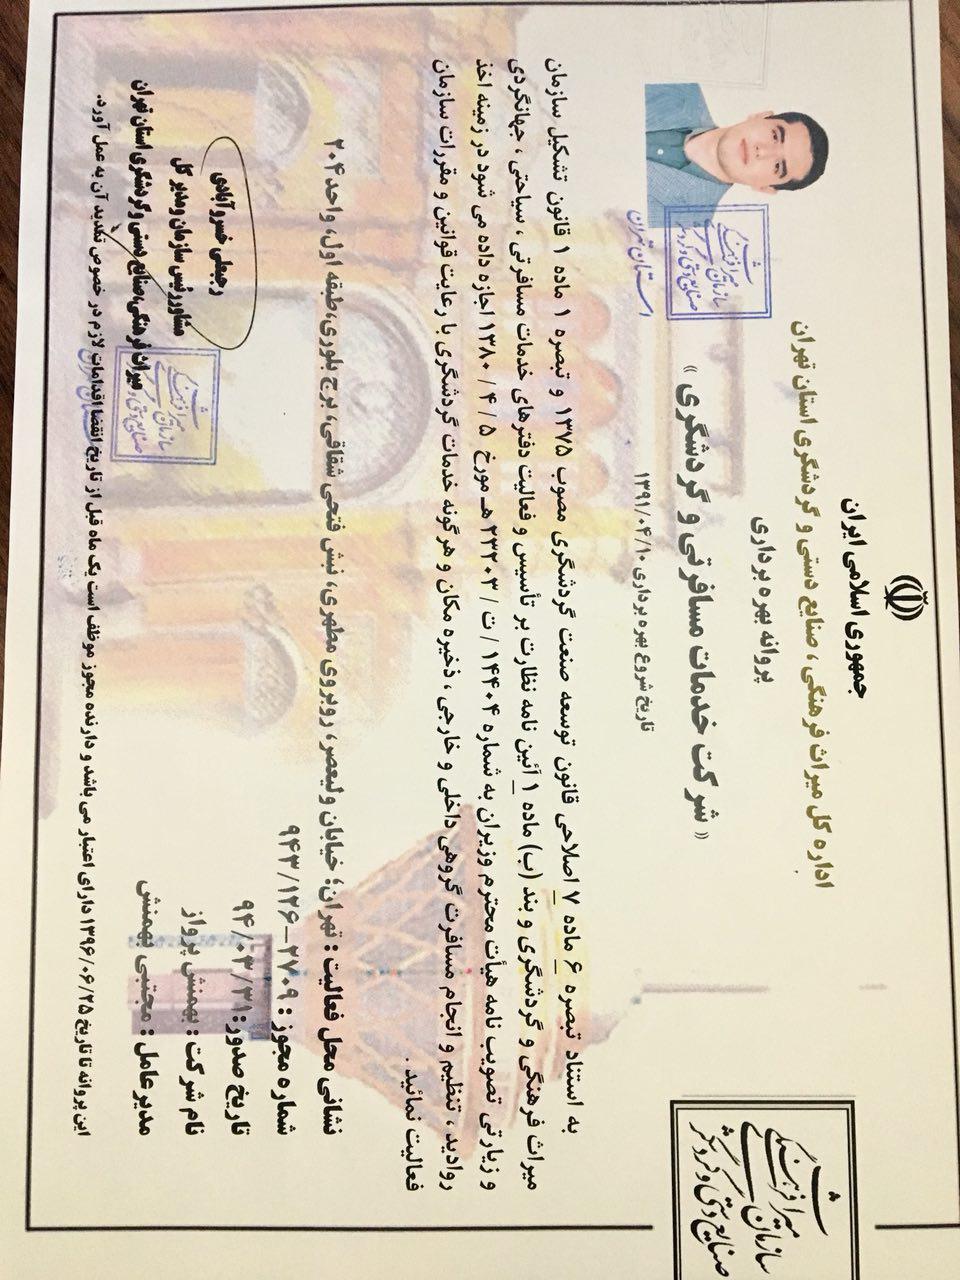 جمهوری اسلامی ایران
اداره کل میراث فرهنگی، صنایع دستی و گردشگری استان تهران
پروانه بهره برداری
« شرکت خدمات مسافرتی و گردشگری »
تاریخ شروع بهره برداری ۱۳۹۱/۰۴/۱۰
سازمان میراث فرهنگی
صنایع دستی و گردشگری
سازمان میراث فرهنگی
صنایع دستی و گردشگری
استان تهران
به استناد تبصره ۶ ماده ۷ اصلاحی قانون توسعه صنعت گردشگری مصوب ۱۳۷۵ و تبصره ۱ ماده ۱ قانون تشکیل سازمان
میراث فرهنگی و گردشگری و بند (ب) ماده ۱ آئین نامه نظارت بر تأسیس و فعالیت دفترهای خدمات مسافرتی ، سیاحتی ، جهانگردی
و زیارتی تصویب نامه هیأت محترم وزیران به شماره ۱۴۴۰۴ / ت / ۲۳۲۰۳ هـ مورخ ۵ / ۴ / ۱۳۸۰ اجازه داده می شود در زمینه اخذ
روادید ، تنظیم و انجام مسافرت گروهی داخلی و خارجی ، ذخیره مکان و هرگونه خدمات گردشگری با رعایت قوانین و مقررات سازمان
فعالیت نمائید.
نشانی محل فعالیت : تهران؛ خیابان ولیعصر، روبروی مطهری، نبش فتحی شقاقی، برج بلوری،طبقه اول، واحد ۲۰۴
شماره مجوز : ۲۷۰۹–۹۴۳/۱۲۶
تاریخ صدور: ۹۴/۰۳/۳۱
نام شرکت : بهمنش پرواز
مدیرعامل : مجتبی بهمنش
رجبعلی خسروآبادی
مشاور رئیس سازمان و مدیر کل
میراث فرهنگی،صنایع دستی و گردشگری استان تهران
سازمان میراث فرهنگی
صنایع دستی و گردشگری
این پروانه تا تاریخ ۱۳۹۶/۰۶/۲۵ دارای اعتبار می باشد و دارنده مجوز موظف است یک ماه قبل از تاریخ انقضا اقدامات لازم در خصوص تمدید آن به عمل آورد.